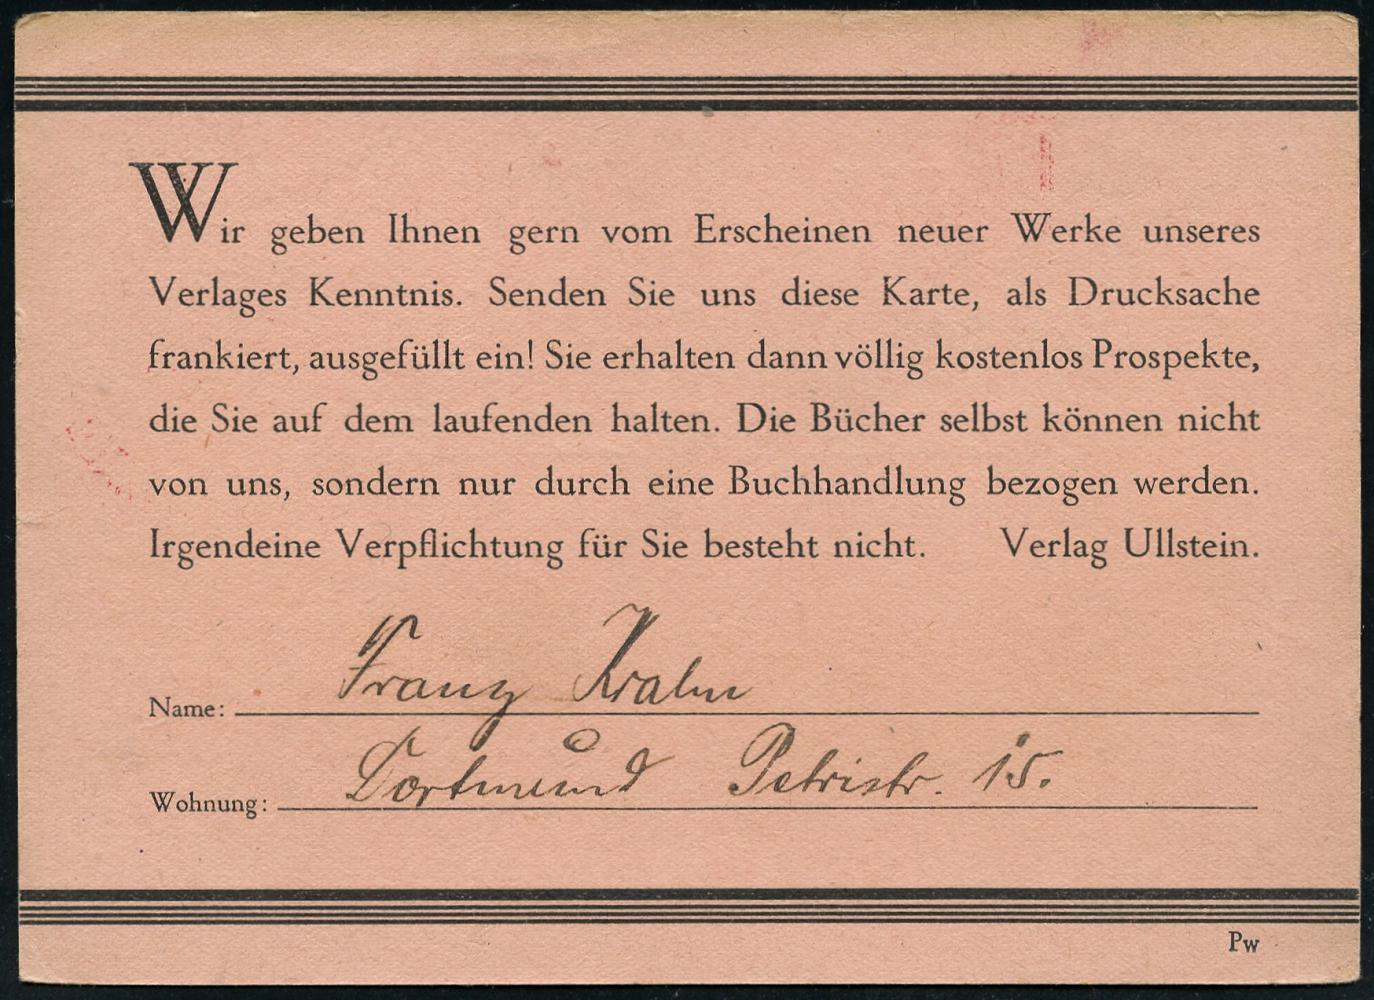 Wir geben Ihnen gern vom Erscheinen neuer Werke unseres
Verlages Kenntnis. Senden Sie uns diese Karte, als Drucksache
frankiert, ausgefüllt ein! Sie erhalten dann völlig kostenlos Prospekte,
die Sie auf dem laufenden halten. Die Bücher selbst können nicht
von uns, sondern nur durch eine Buchhandlung bezogen werden.
Irgendeine Verpflichtung für Sie besteht nicht. Verlag Ullstein.
Name: Franz Krahn
Wohnung: Dortmund Petristr. 15.
Pw